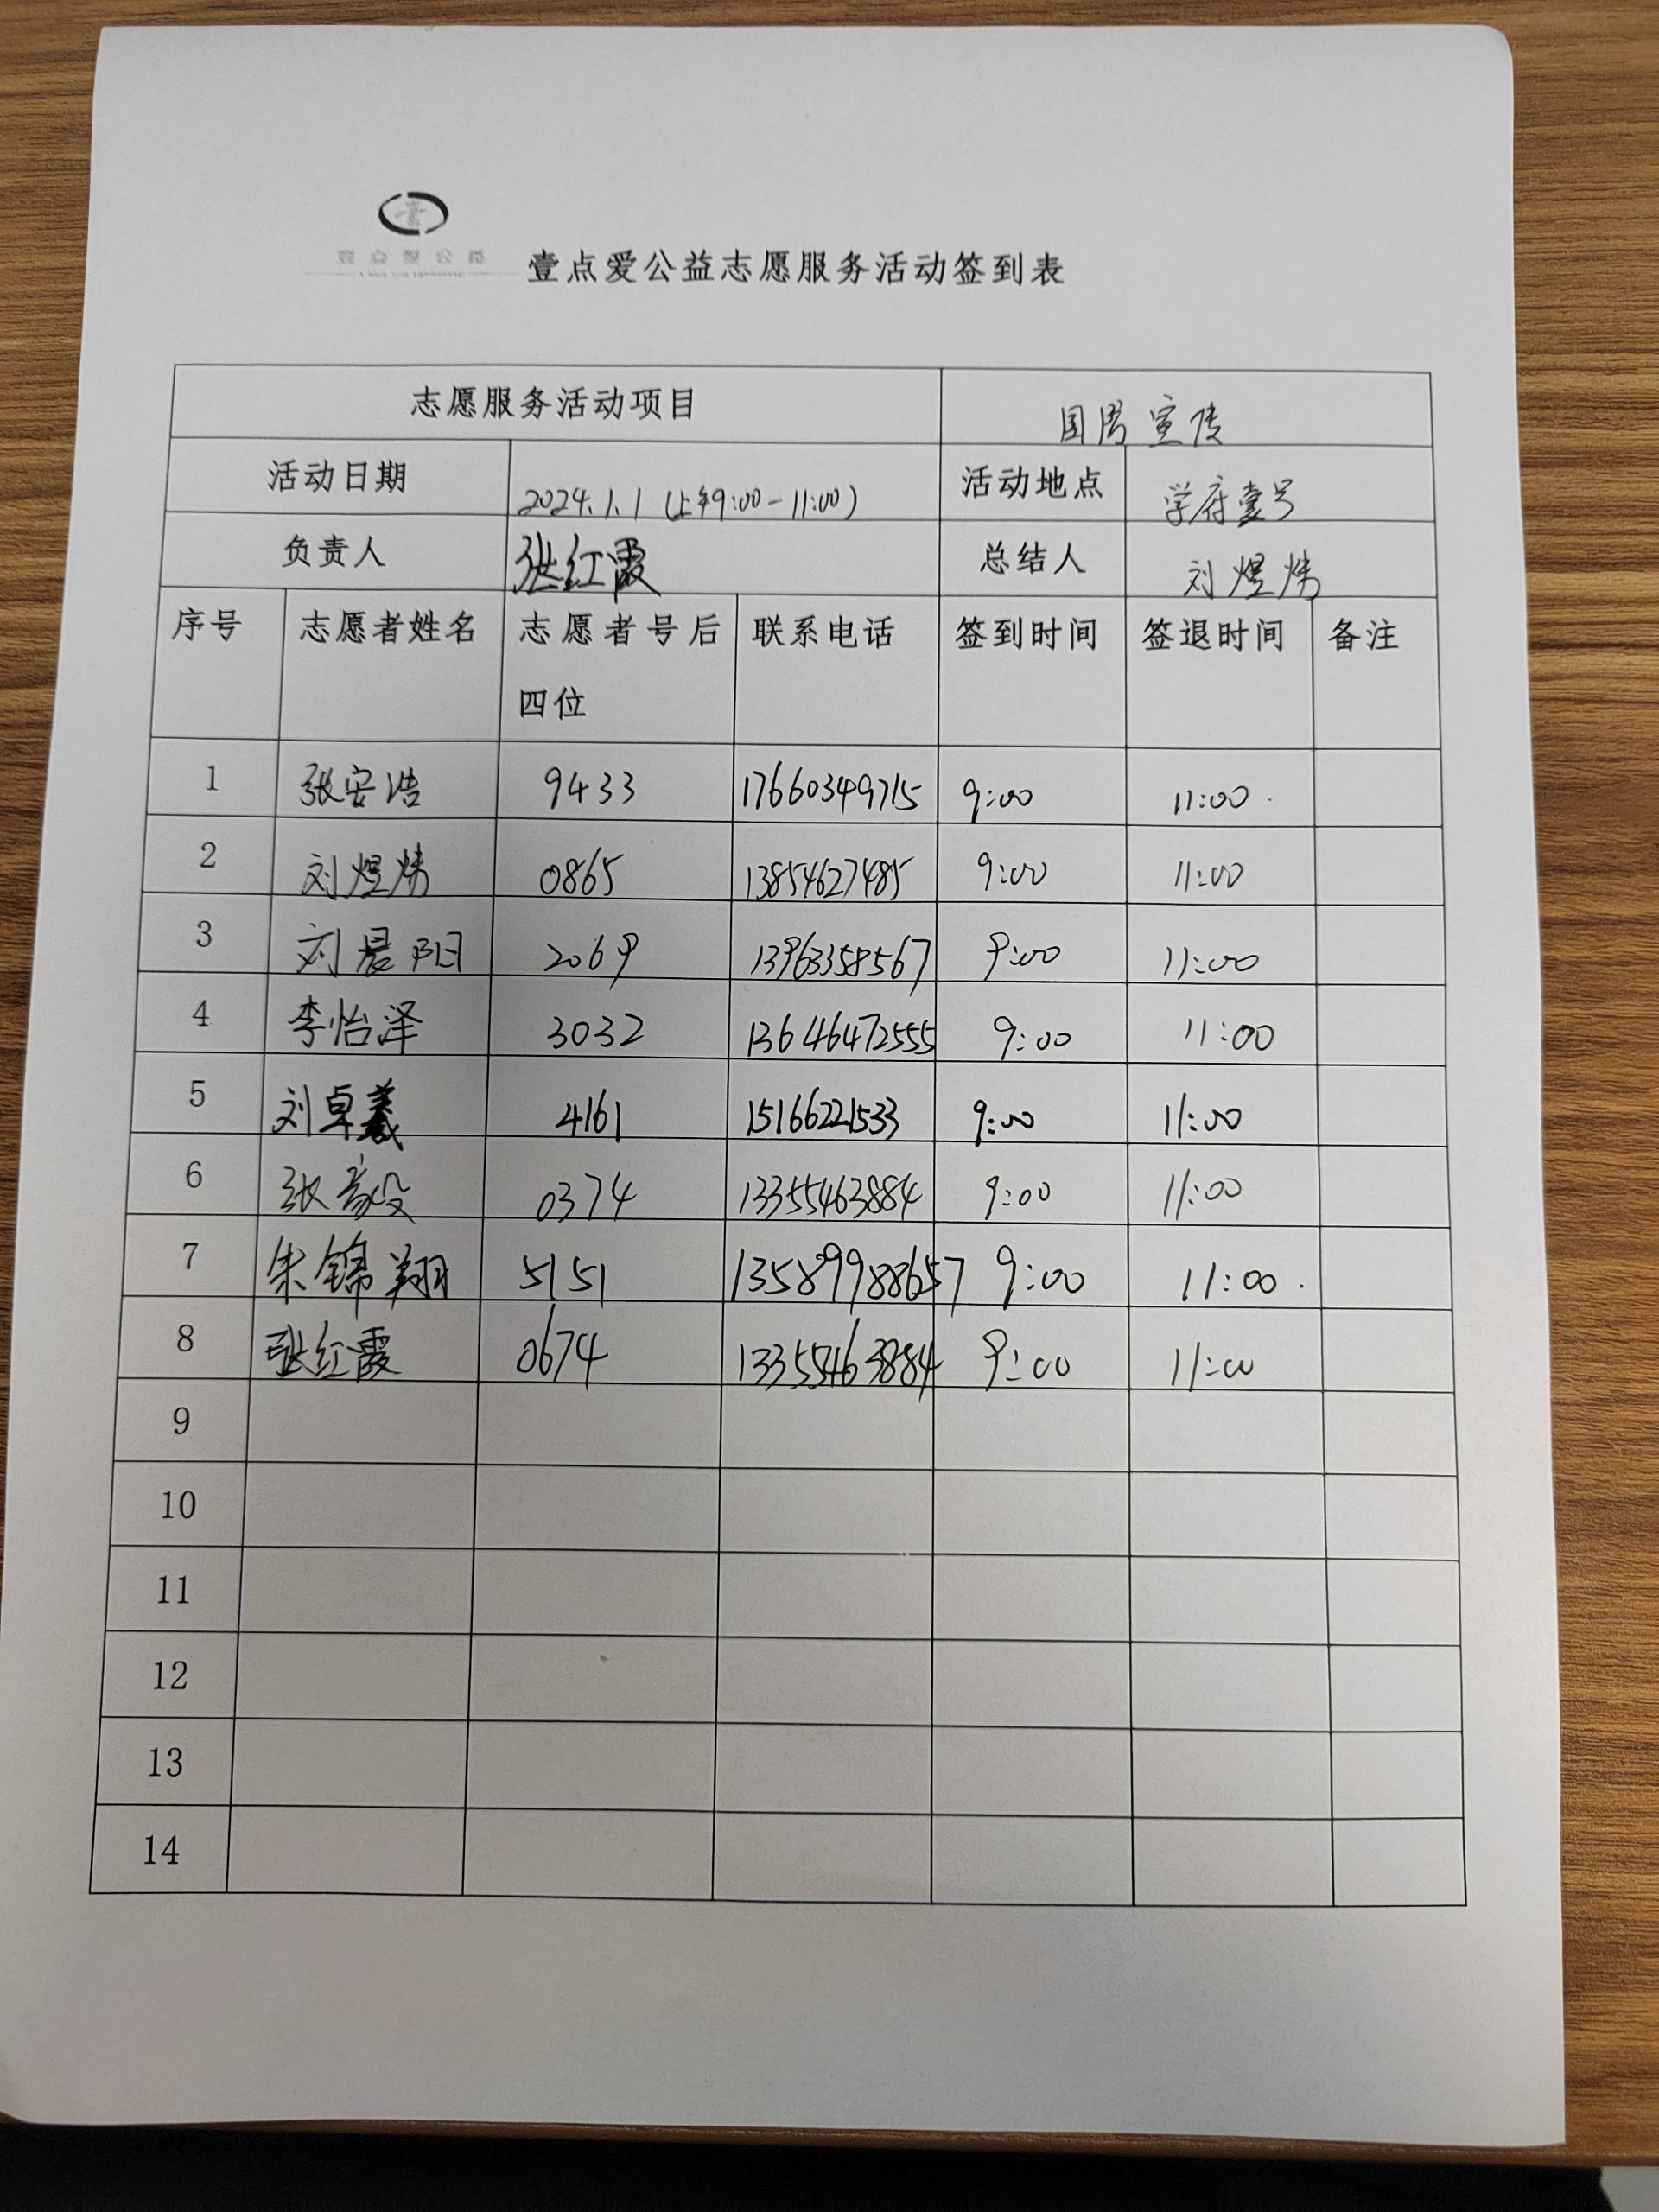 壹点爱公益
壹点爱公益志愿服务活动签到表
志愿服务活动项目 宣传
活动日期 2024.1.1 (上午9:00-11:00) 活动地点 学府壹号
负责人 张红霞 总结人 刘煜炜
序号 志愿者姓名 志愿者号后四位 联系电话 签到时间 签退时间 备注
1 张安浩 9433 17660349715 9:00 11:00
2 刘煜炜 0865 13854627485 9:00 11:00
3 刘晨阳 2069 13963358567 9:00 11:00
4 李怡泽 3032 13646472555 9:00 11:00
5 刘卓羲 4161 15166221533 9:00 11:00
6 张 0374 13355463884 9:00 11:00
7 朱锦翔 5151 13589988657 9:00 11:00
8 张红霞 0674 13355463884 9:00 11:00
9
10
11
12
13
14